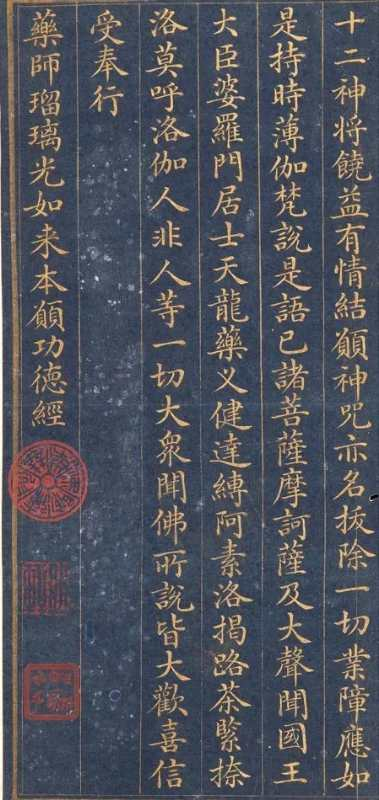 十二神将饒益有情結願神咒亦名拔除一切業障應如
是持時薄伽梵說是語已諸菩薩摩訶薩及大聲聞國王
大臣婆羅門居士天龍藥叉健達縛阿素洛揭路荼緊捺
洛莫呼洛伽人非人等一切大衆聞佛所說皆大歡喜信
受奉行
藥師瑠璃光如来本願功德經